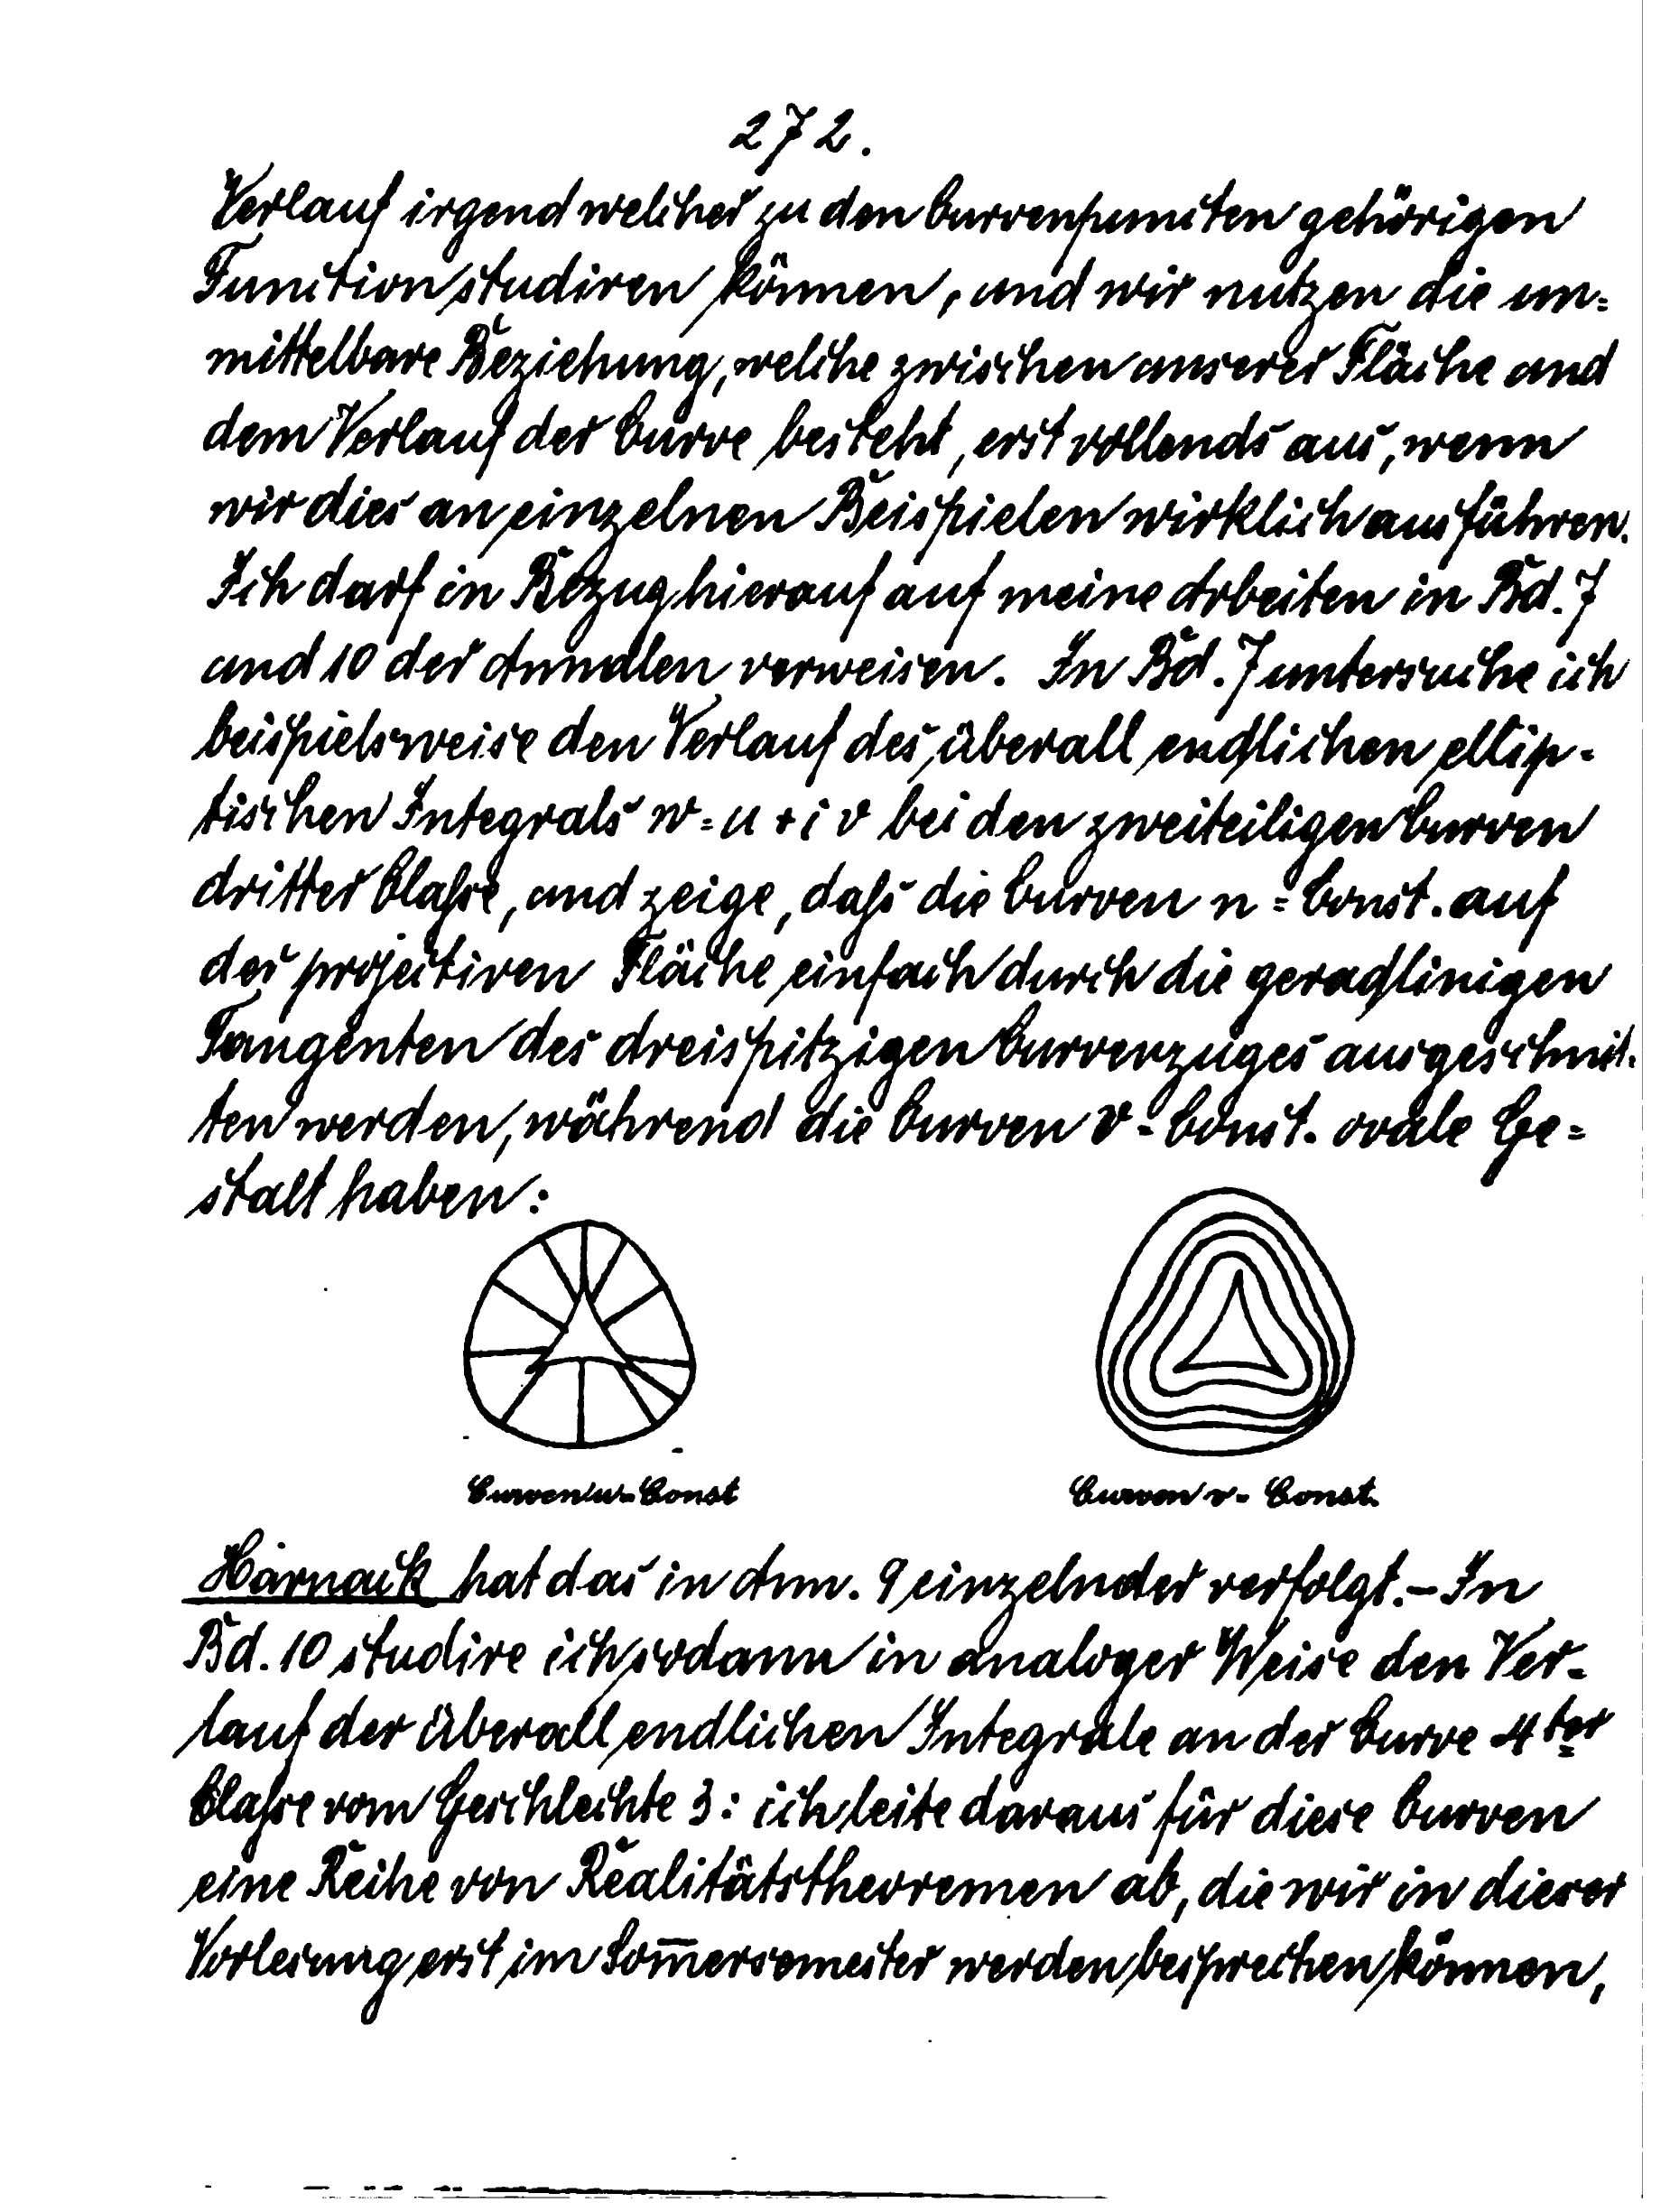 272.
Verlauf irgend welcher zu den Curvenpuncten gehörigen
Function studiren können, und wir nutzen die un=
mittelbare Beziehung, welche zwischen unserer Fläche und
dem Verlauf der Curve besteht, erst vollends aus, wenn
wir dies an einzelnen Beispielen wirklich ausführen.
Ich darf in Bezug hierauf auf meine Arbeiten in Bd. 7
und 10 der Annalen verweisen. In Bd. 7 untersuche ich
beispielsweise den Verlauf des überall endlichen ellip-
tischen Integrals w = u + i v bei den zweiteiligen Curven
dritter Classe, und zeige, dass die Curven u = Const. auf
der projectiven Fläche einfach durch die geradlinigen
Tangenten des dreispitzigen Curvenzuges ausgeschnit-
ten werden, während die Curven v = Const. ovale Ge=
stalt haben:
Curven u = Const
Curven v = Const.
Harnack hat das in Ann. 9 einzelnder verfolgt. – In
Bd. 10 studire ich sodann in analoger Weise den Ver-
lauf der überall endlichen Integrale an der Curve 4ter
Classe vom Geschlechte 3: ich leite daraus für diese Curven
eine Reihe von Realitätstheoremen ab, die wir in dieser
Vorlesung erst im Som̅ersemester werden besprechen können,